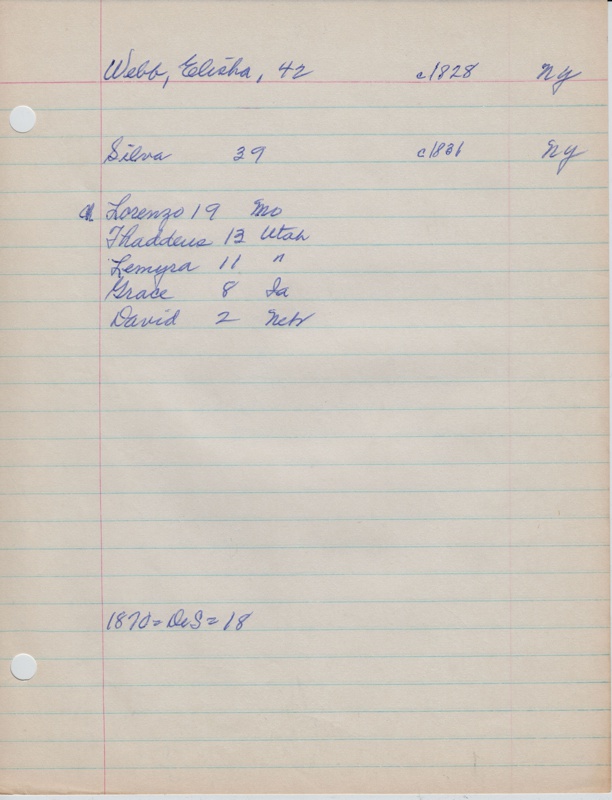 Webb, Elisha, 42 c1828 Ny
Silva 39 c1831 Ny
Ch Lorenzo 19 Mo
Thaddeus 13 Utah
Lemyra 11 "
Grace 8 Ia
David 2 Nebr
1870 = DeS = 18